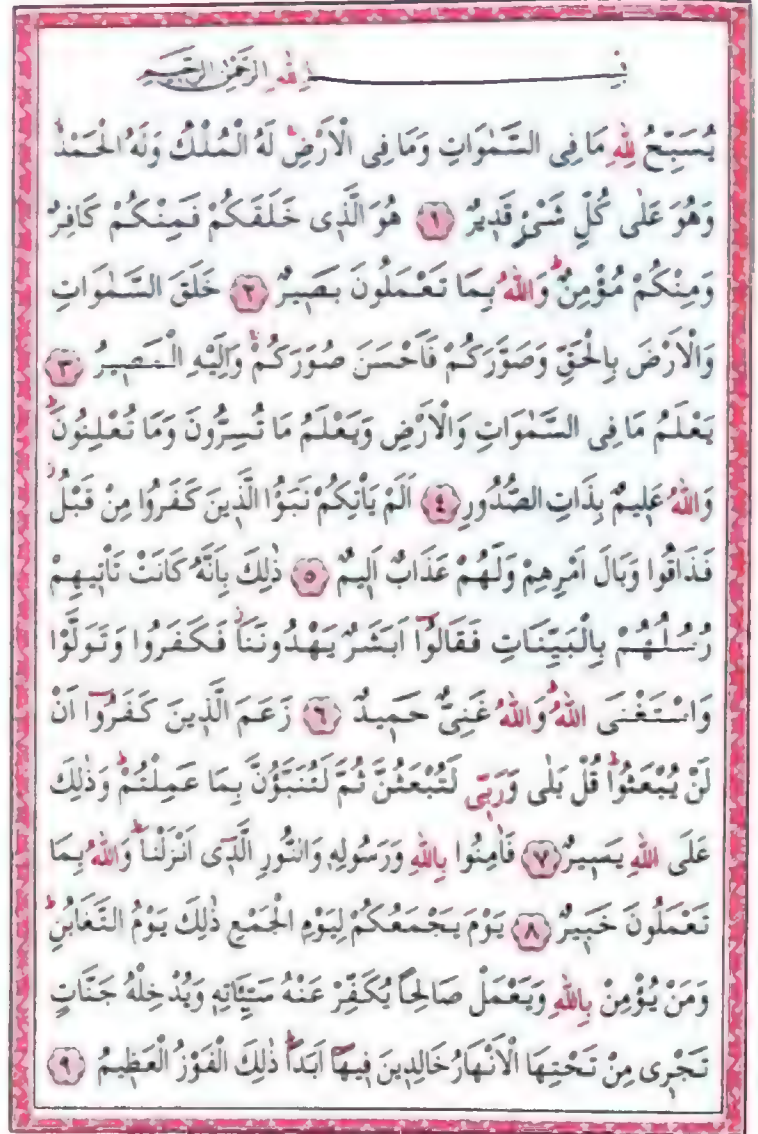 بِسْمِ اللّٰهِ الرَّحْمٰنِ الرَّحِيمِ
يُسَبِّحُ لِلّٰهِ مَا فِى السَّمٰوَاتِ وَمَا فِى الْاَرْضِۚ لَهُ الْمُلْكُ وَلَهُ الْحَمْدُۘ
وَهُوَ عَلٰى كُلِّ شَىْءٍ قَدٖيرٌ ﴿١﴾ هُوَ الَّذٖى خَلَقَكُمْ فَمِنْكُمْ كَافِرٌ
وَمِنْكُمْ مُؤْمِنٌؕ وَاللّٰهُ بِمَا تَعْمَلُونَ بَصٖيرٌ ﴿٢﴾ خَلَقَ السَّمٰوَاتِ
وَالْاَرْضَ بِالْحَقِّ وَصَوَّرَكُمْ فَاَحْسَنَ صُوَرَكُمْۚ وَاِلَيْهِ الْمَصٖيرُ ﴿٣﴾
يَعْلَمُ مَا فِى السَّمٰوَاتِ وَالْاَرْضِ وَيَعْلَمُ مَا تُسِرُّونَ وَمَا تُعْلِنُونَؕ
وَاللّٰهُ عَلٖيمٌ بِذَاتِ الصُّدُورِ ﴿٤﴾ اَلَمْ يَاْتِكُمْ نَبَؤُا الَّذٖينَ كَفَرُوا مِنْ قَبْلُؗ
فَذَاقُوا وَبَالَ اَمْرِهِمْ وَلَهُمْ عَذَابٌ اَلٖيمٌ ﴿٥﴾ ذٰلِكَ بِاَنَّهُ كَانَتْ تَاْتٖيهِمْ
رُسُلُهُمْ بِالْبَيِّنَاتِ فَقَالُٓوا اَبَشَرٌ يَهْدُونَنَاؗ فَكَفَرُوا وَتَوَلَّوْا
وَاسْتَغْنَى اللّٰهُؕ وَاللّٰهُ غَنِىٌّ حَمٖيدٌ ﴿٦﴾ زَعَمَ الَّذٖينَ كَفَرُٓوا اَنْ
لَنْ يُبْعَثُواؕ قُلْ بَلٰى وَرَبّٖى لَتُبْعَثُنَّ ثُمَّ لَتُنَبَّؤُنَّ بِمَا عَمِلْتُمْؕ وَذٰلِكَ
عَلَى اللّٰهِ يَسٖيرٌ ﴿٧﴾ فَاٰمِنُوا بِاللّٰهِ وَرَسُولِهٖ وَالنُّورِ الَّذٖٓى اَنْزَلْنَاؕ وَاللّٰهُ بِمَا
تَعْمَلُونَ خَبٖيرٌ ﴿٨﴾ يَوْمَ يَجْمَعُكُمْ لِيَوْمِ الْجَمْعِ ذٰلِكَ يَوْمُ التَّغَابُنِؕ
وَمَنْ يُؤْمِنْ بِاللّٰهِ وَيَعْمَلْ صَالِحًا يُكَفِّرْ عَنْهُ سَيِّـَٔاتِهٖ وَيُدْخِلْهُ جَنَّاتٍ
تَجْرٖى مِنْ تَحْتِهَا الْاَنْهَارُ خَالِدٖينَ فٖيهَٓا اَبَدًاؕ ذٰلِكَ الْفَوْزُ الْعَظٖيمُ ﴿٩﴾